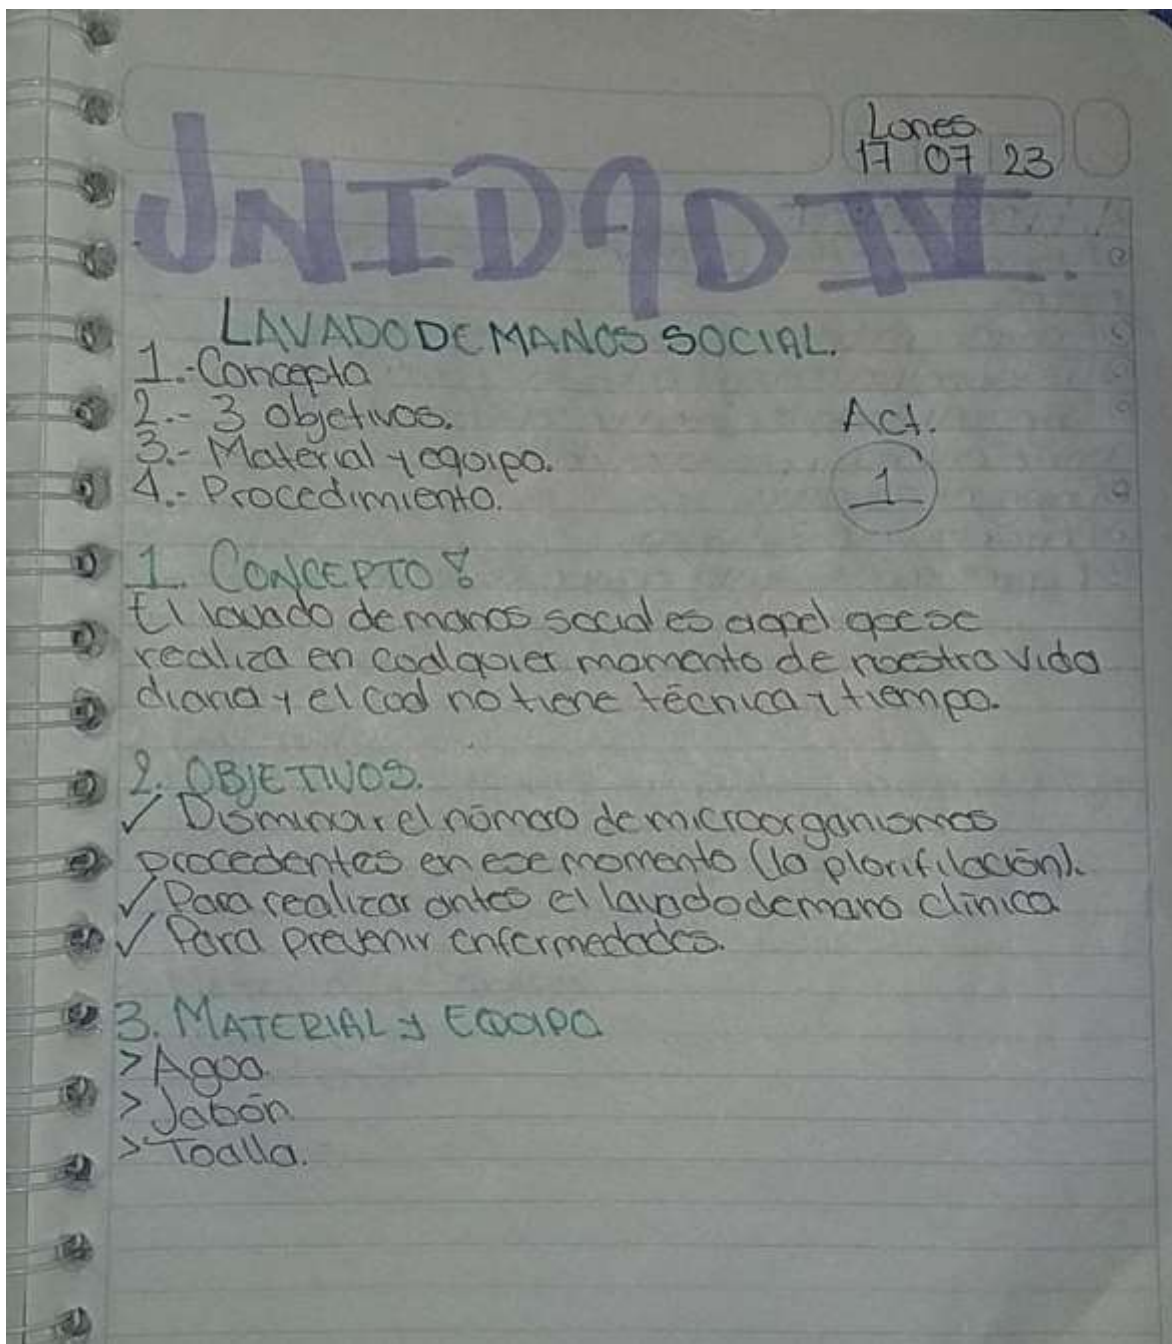 Lunes
17 07 23
UNIDAD IV
LAVADO DE MANOS SOCIAL.
1.- Concepto
2.- 3 objetivos.
3.- Material y equipo.
4.- Procedimiento.
Act.
1
1. CONCEPTO:
El lavado de manos social es aquel que se
realiza en cualquier momento de nuestra vida
diaria y el cual no tiene técnica y tiempo.
2. OBJETIVOS.
✓ Disminuir el número de microorganismos
procedentes en ese momento (la plorifilación).
✓ Para realizar antes el lavado de mano clínica
✓ Para prevenir enfermedades.
3. MATERIAL y EQUIPO
> Agua.
> Jabón
> Toalla.